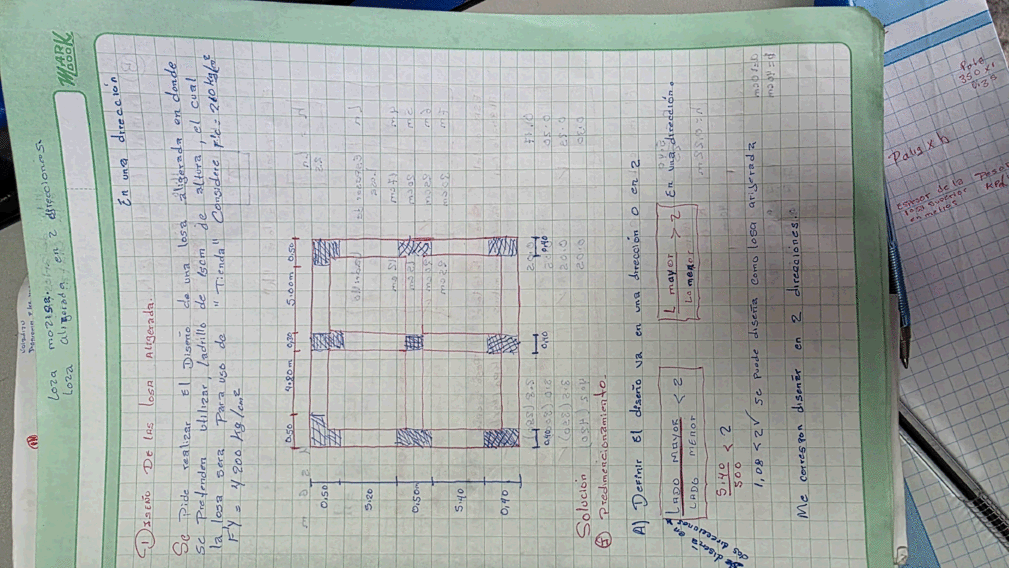 Loza maziza.
Loza aligerada en 2 direcciones.
MARK BOOK
En una dirección
① DISEÑO DE LAS LOSA ALIGERADA.
Se Pide realizar El Diseño de una losa aligerada en donde
se Pretenden utilizar, ladrillo de 15cm de altura, el cual
la losa sera Para uso de "Tienda" Considere F'c = 210 kg/cm²
F'y = 4200 kg/cm²
0.50 4.80m 0.50 5.00m 0.50
0.50
5.20
0.50
5.40
0.40
0.40 0.40 0.40
Solución
Predimencionamiento.
A) Definir El diseño va en una dirección o en 2
LADO mayor / LADO MENOR < 2
L mayor / L menor > 2
En una dirección.
se diseña en dos direcciones
5.40 / 500 < 2
1,08 < 2 √ se puede diseña como losa aligerada
Me correspon diseñar en 2 direcciones.
Palig x h
espesor de la losa superior en metros
Peso